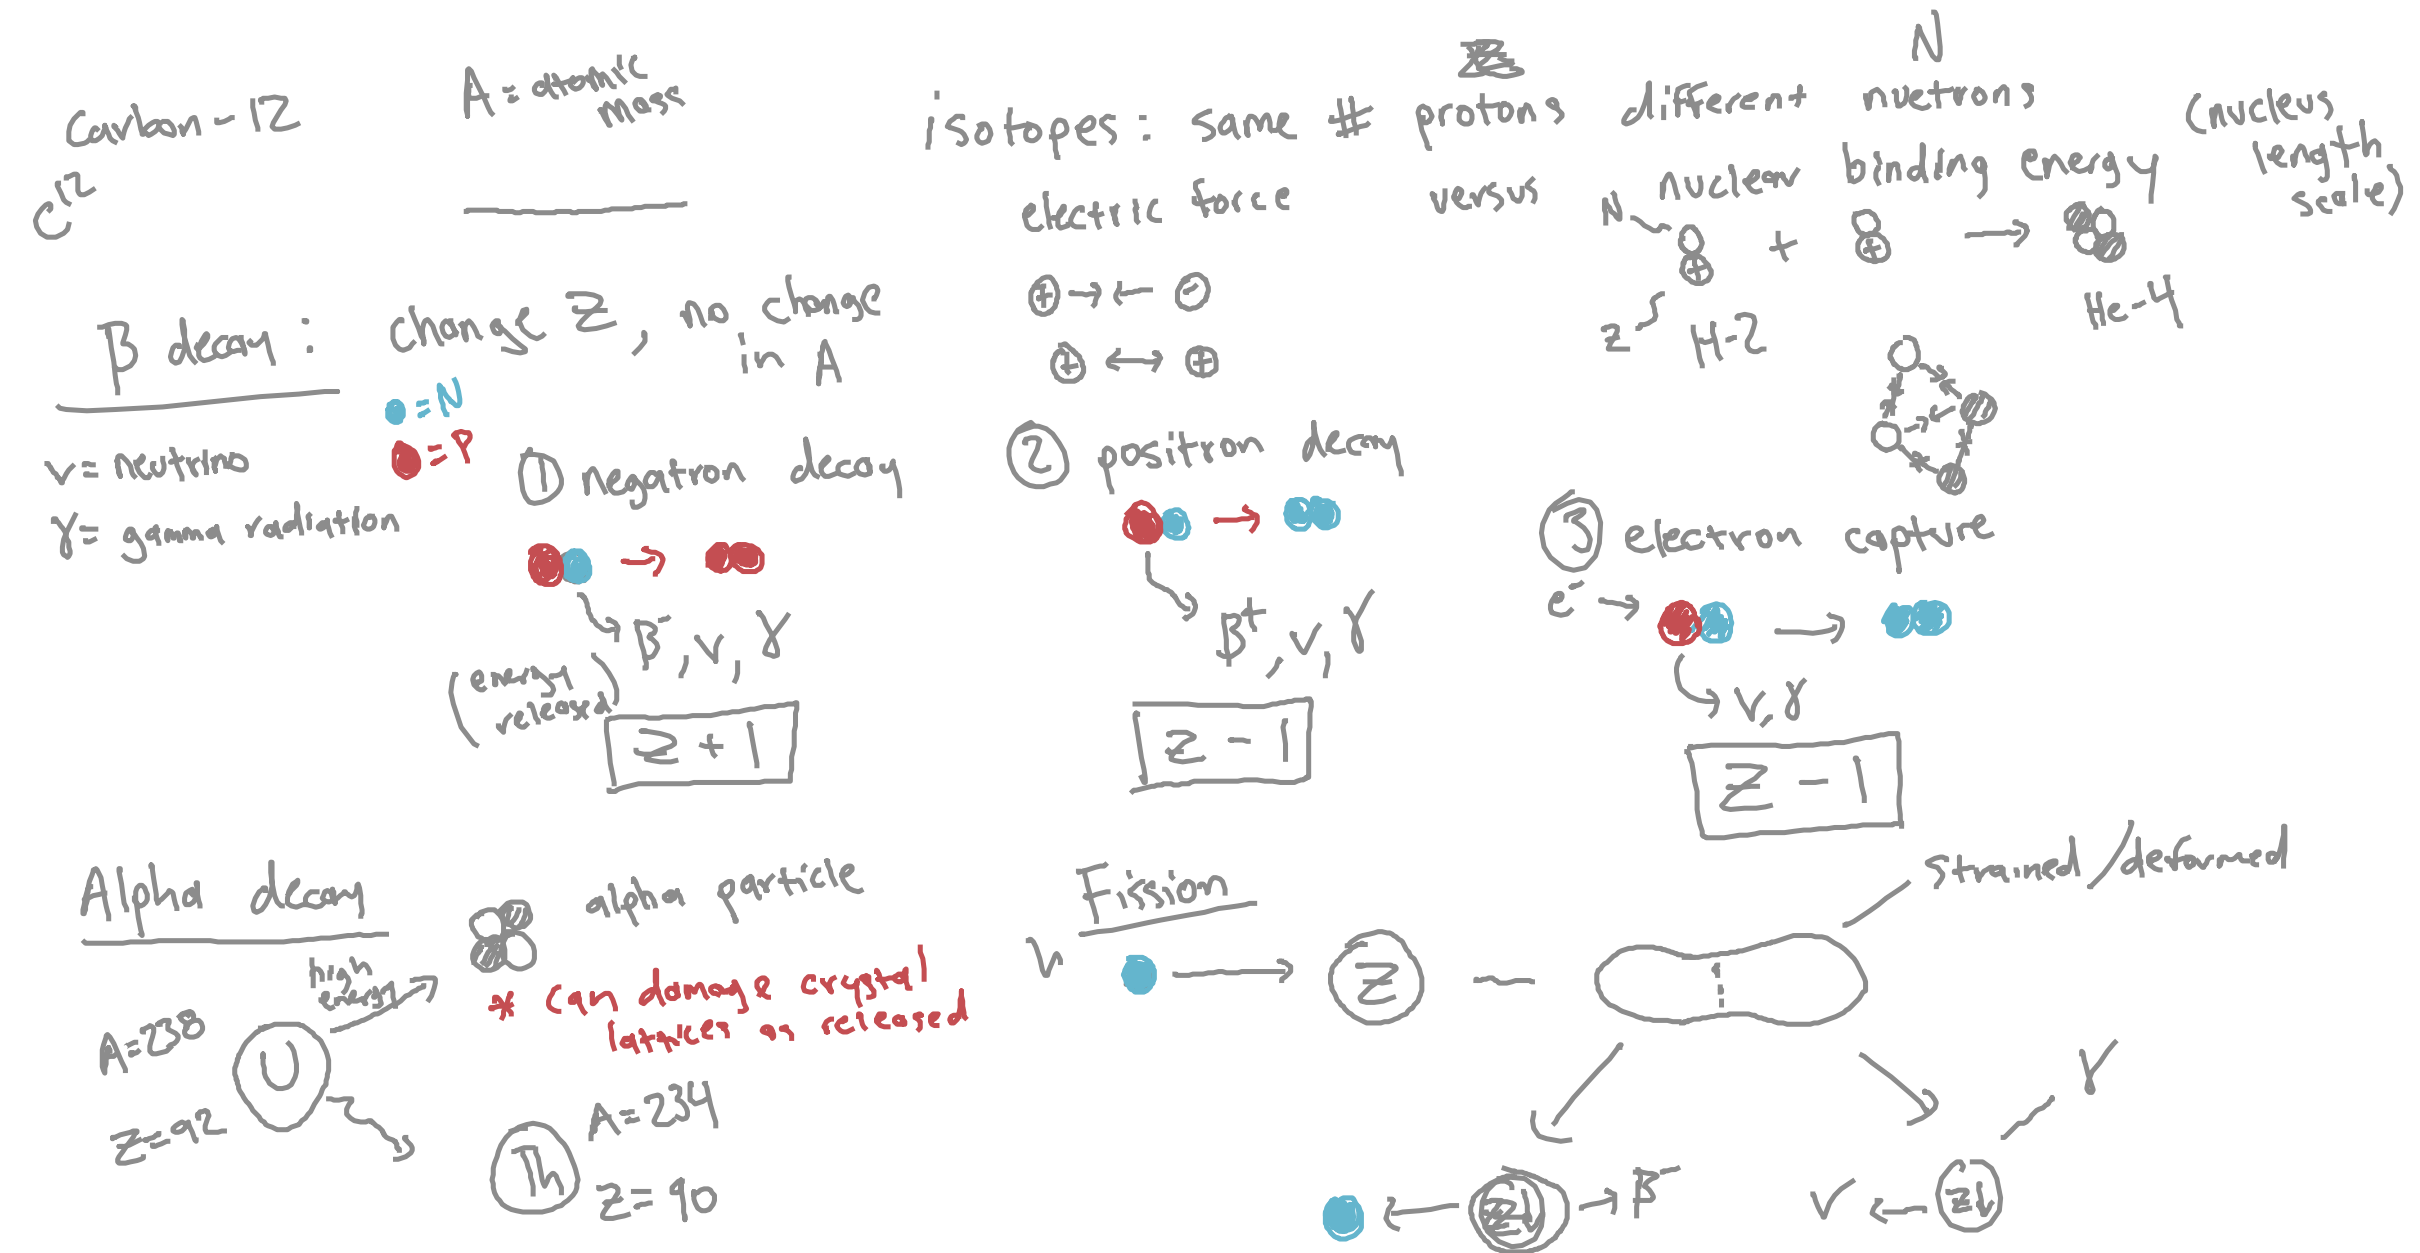 Carbon-12
C¹²
A = atomic
mass
N
isotopes: same # protons different nuetrons
(nucleus
length
scale)
electric force versus nuclear binding energy
+ → ← -
+ ↔ +
N
Z
+ + + →
H-2
He-4
β decay: change Z, no change
in A
= N
= P
ν = neutrino
γ = gamma radiation
① negatron decay
→
β⁻, ν, γ
(energy
released)
Z + 1
② positron decay
→
β⁺, ν, γ
Z - 1
③ electron capture
e⁻ → →
ν, γ
Z - 1
Alpha decay
alpha particle
high
energy
* can damage crystal
lattices as released
A=238
U
Z=92
A=234
Th
Z=90
Fission
strained/deformed
ν
Z
γ
β⁻
ν
Z↓